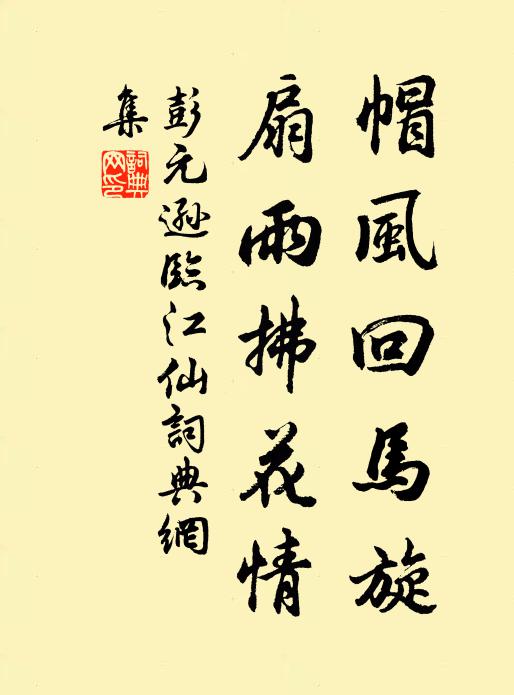 帽風回馬旋
扇雨拂花情
彭元遜臨江仙詞典網
集
詞典網印